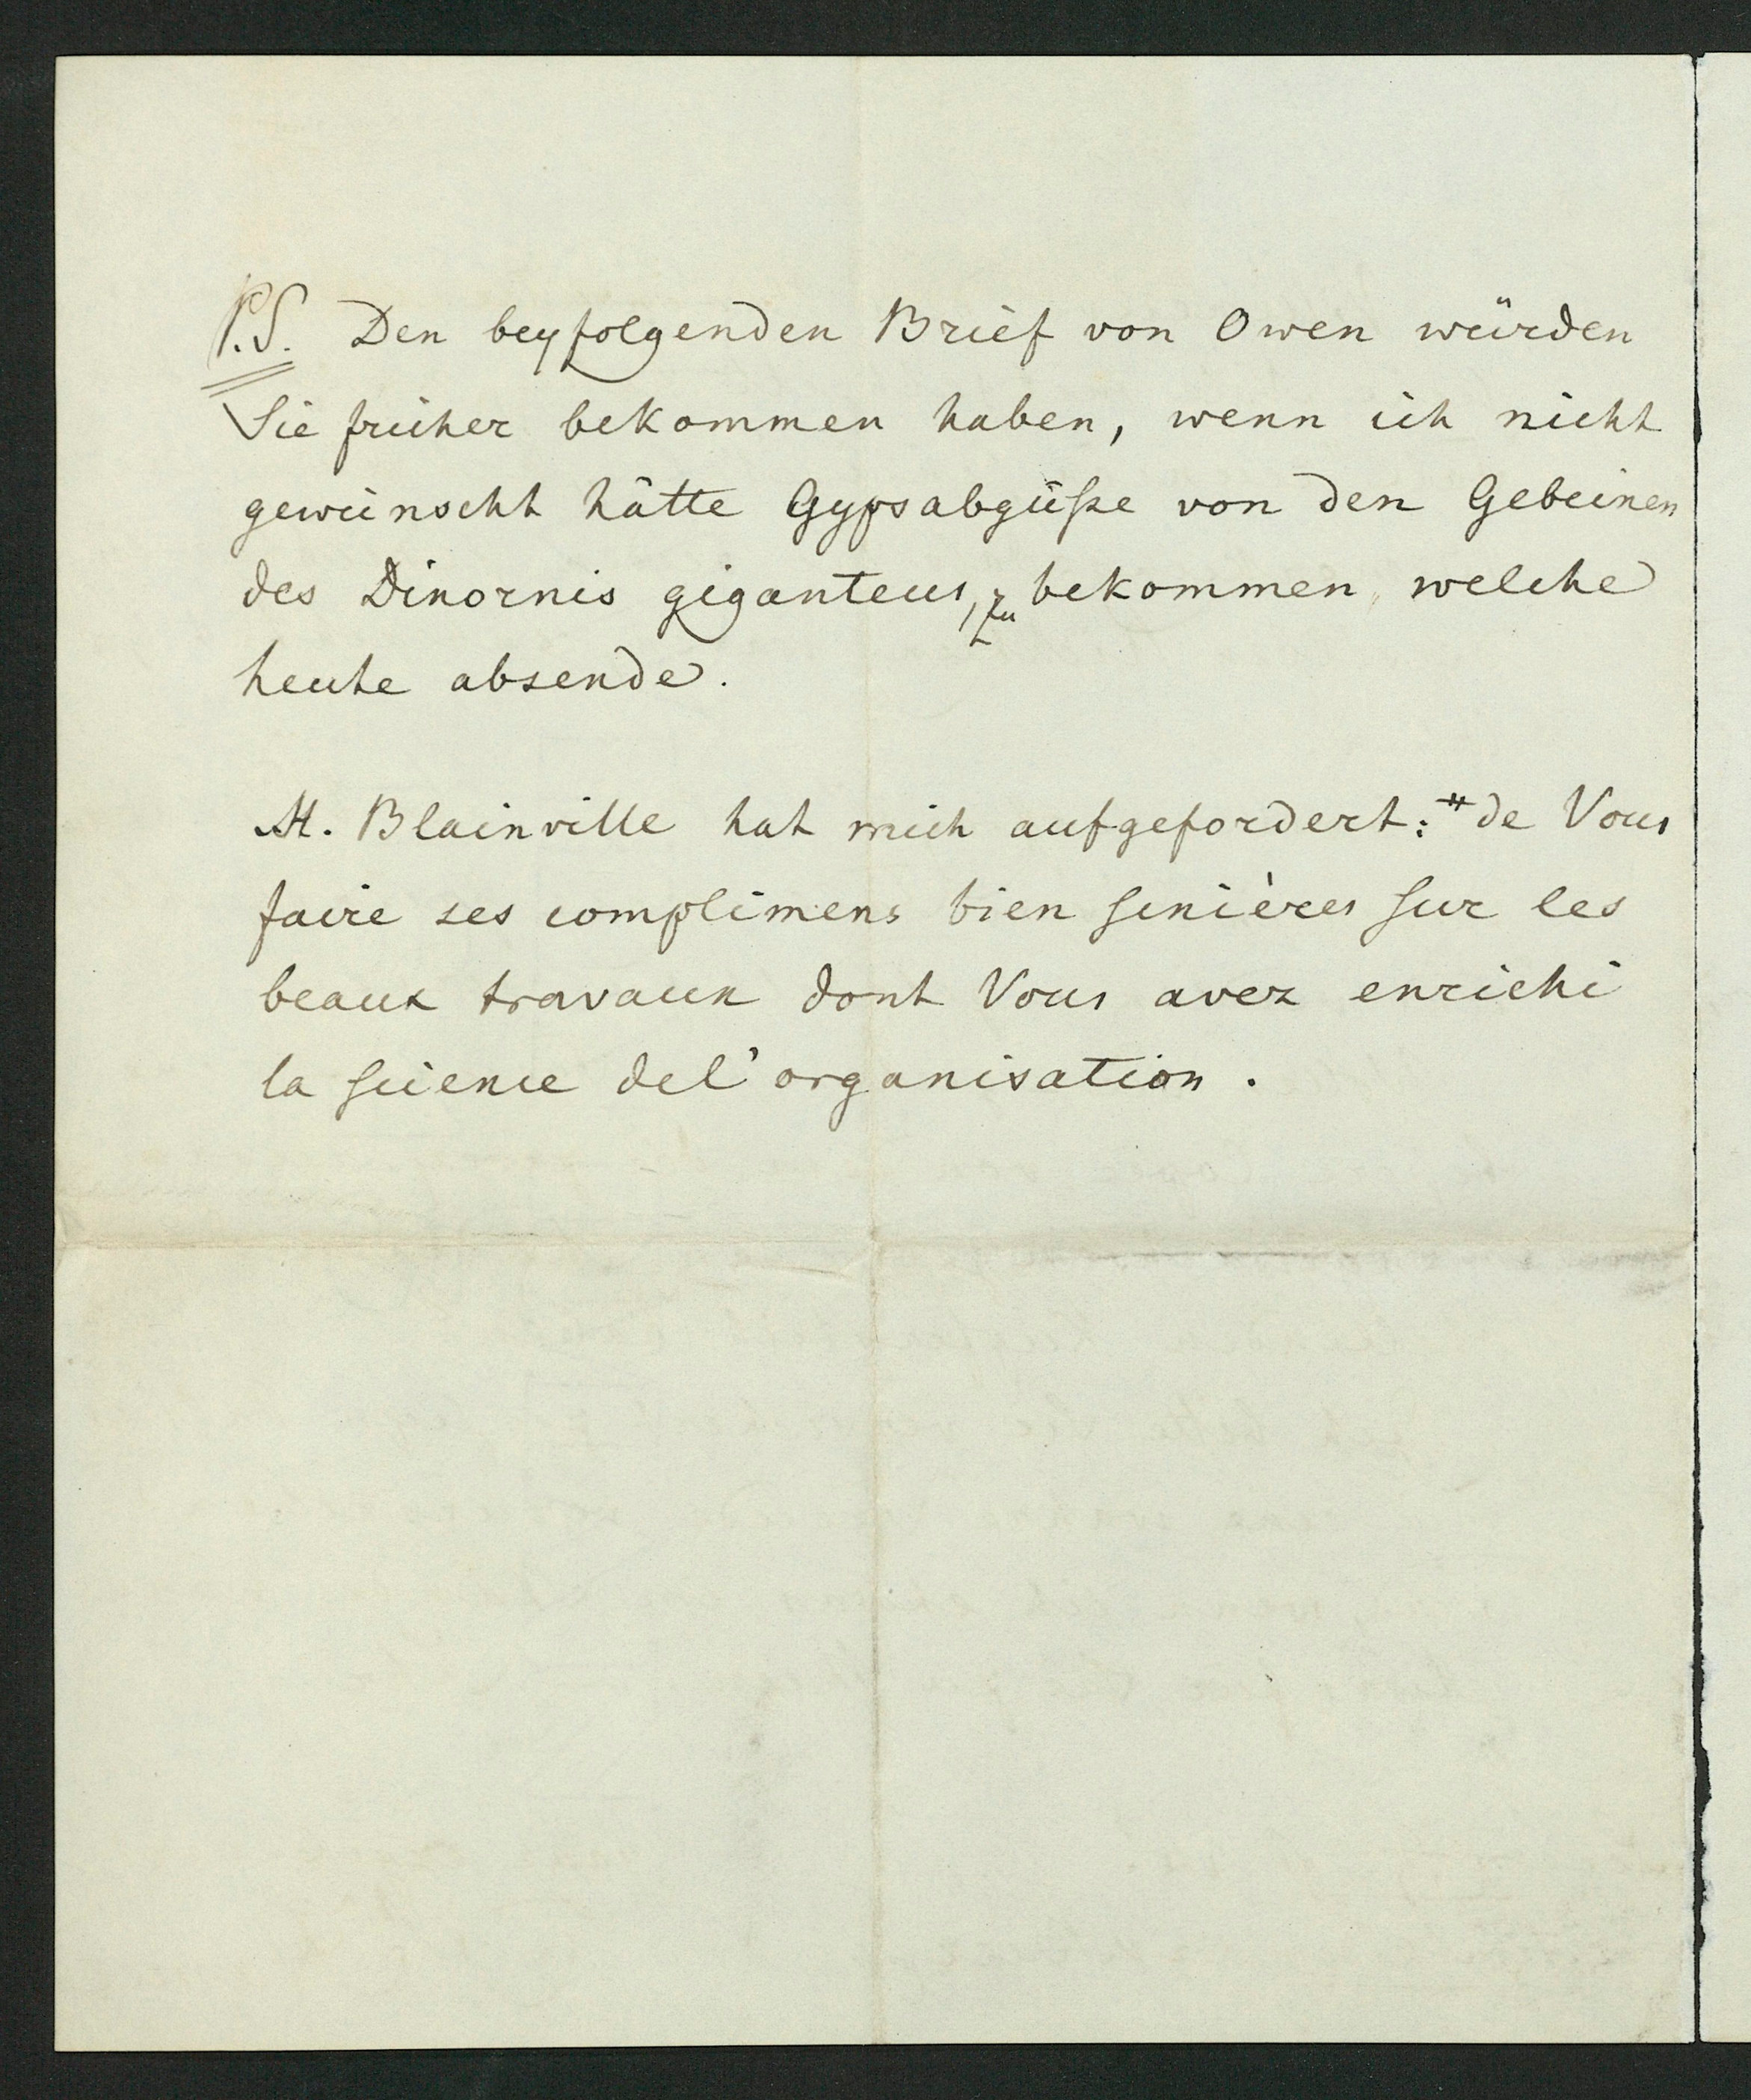 P.S. Den beyfolgenden Brief von Owen würden
Sie früher bekommen haben, wenn ich nicht
gewünscht hätte Gypsabgüße von den Gebeinen
des Dinornis giganteus, zu bekommen, welche
heute absende.
M. Blainville hat mich aufgefordert: "de Vous
faire ses complimens bien sincères sur les
beaux travaux dont Vous avez enrichi
la science del'organisation.